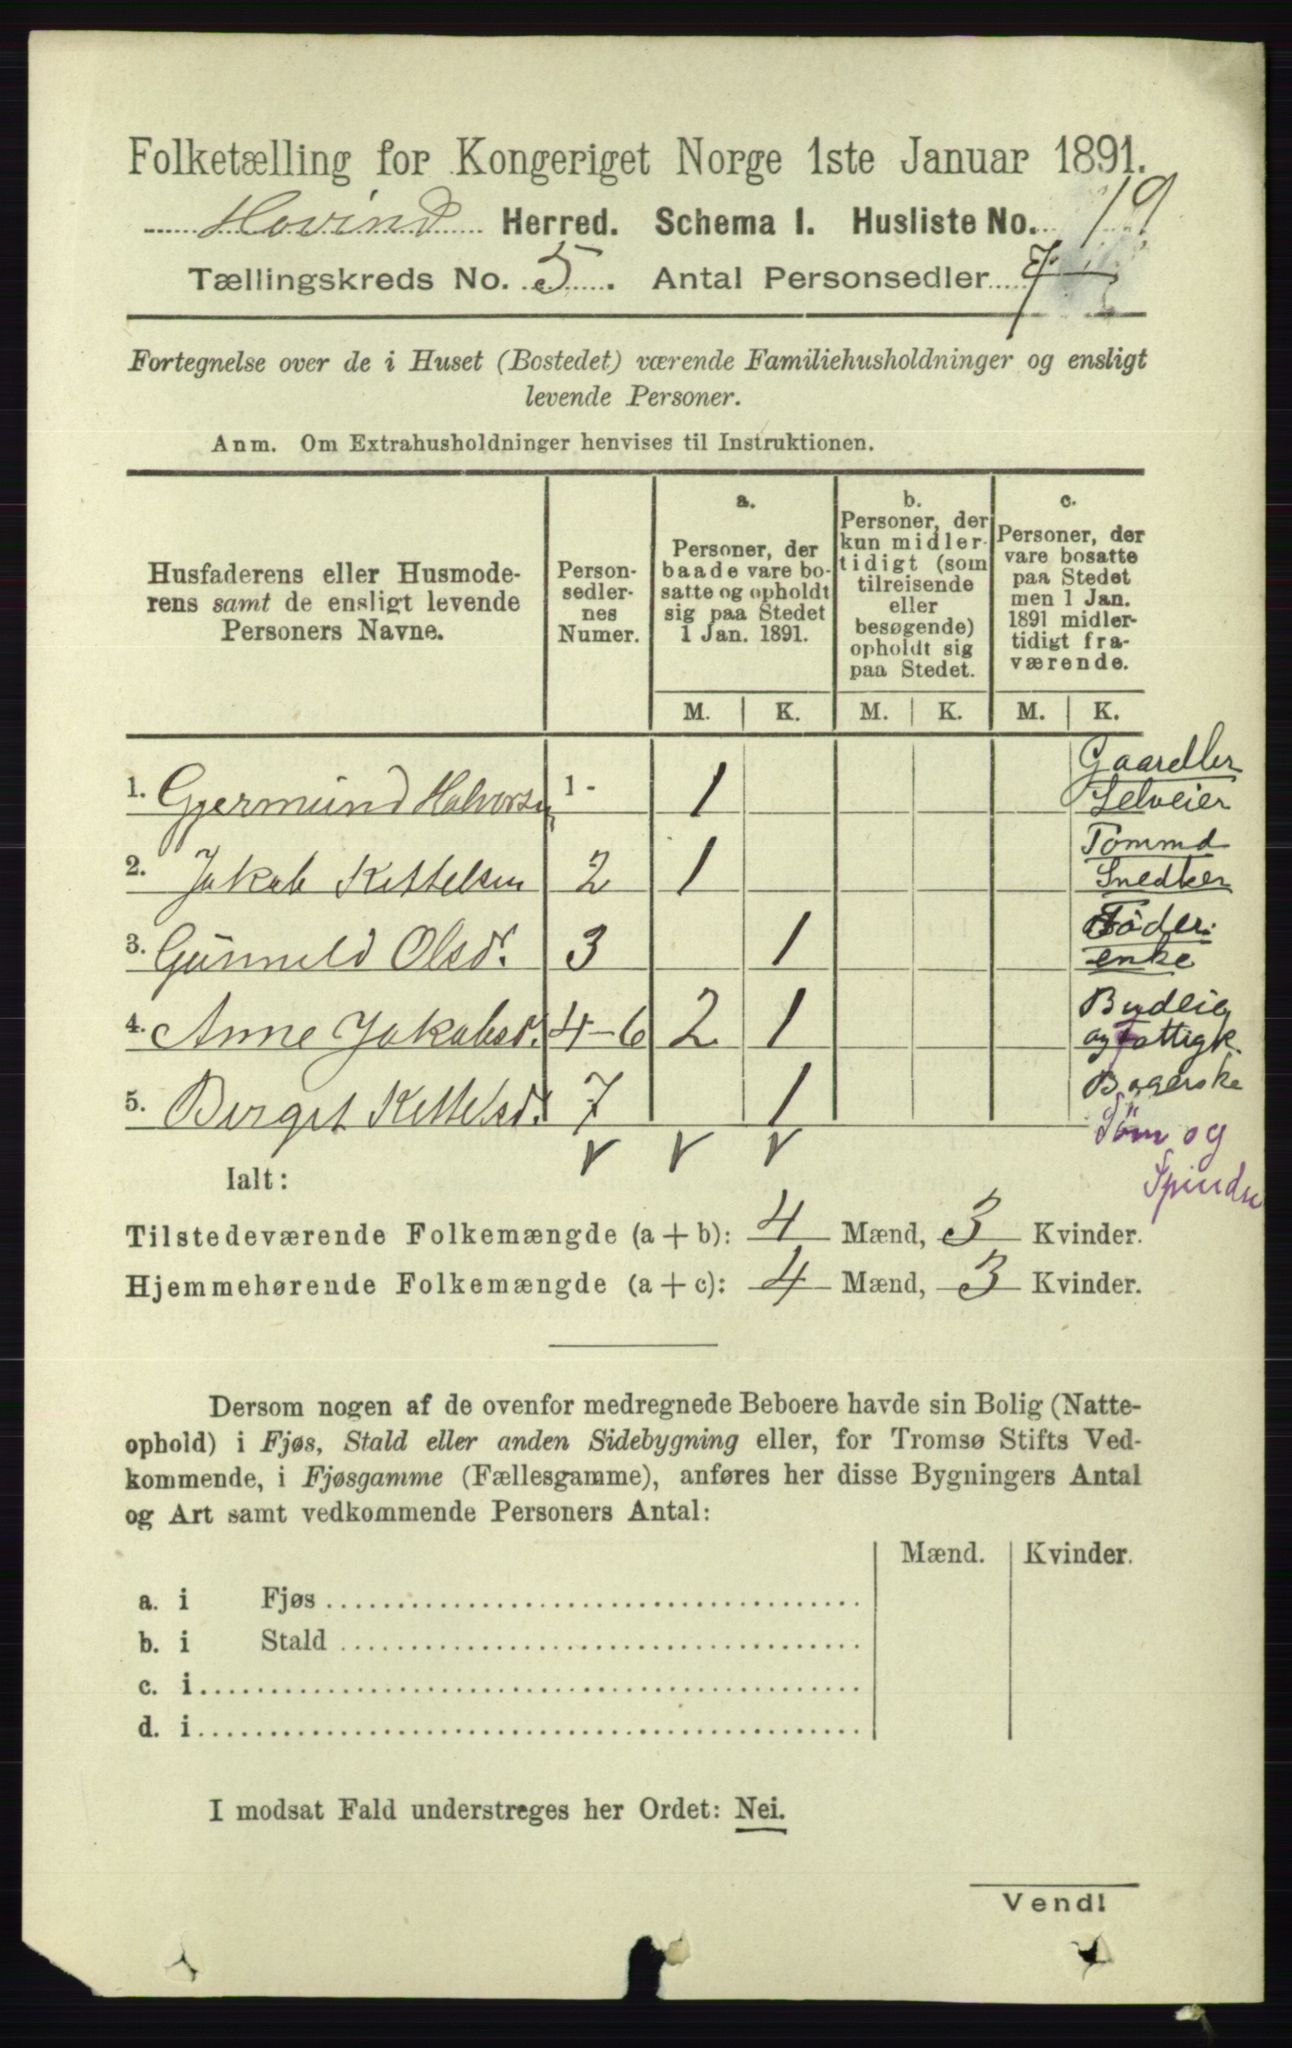 Folketælling for Kongeriget Norge 1ste Januar 1891.
Hovind Herred. Schema I. Husliste No. 19
Tællingskreds No. 5. Antal Personsedler 7
Fortegnelse over de i Huset (Bostedet) værende Familiehusholdninger og ensligt
levende Personer.
Anm. Om Extrahusholdninger henvises til Instruktionen.
Husfaderens eller Husmode-
rens samt de ensligt levende
Personers Navne.
Person-
sedler-
nes
Numer.
a.
Personer, der
baade vare bo-
satte og opholdt
sig paa Stedet
1 Jan. 1891.
b.
Personer, der
kun midler-
tidigt (som
tilreisende
eller
besøgende)
opholdt sig
paa Stedet.
c.
Personer, der
vare bosatte
paa Stedet
men 1 Jan.
1891 midler-
tidigt fra-
værende.
M. K. M. K. M. K.
1. Gjermund Halvorsen 1 - 1 Gaardbr
Selveier
2. Jakob Kittelsen 2 1 Tømmd
Snedker
3. Gunnuld Olsdr. 3 1 Føder.
enke
4. Anne Jakobsd. 4-6 2 1 Budeig
og Fattigk
5. Birget Kittelsd. 7 1 Bagerske
Søm og
Spindn
Ialt:
Tilstedeværende Folkemængde (a + b): 4 Mænd, 3 Kvinder.
Hjemmehørende Folkemængde (a + c): 4 Mænd, 3 Kvinder.
Dersom nogen af de ovenfor medregnede Beboere havde sin Bolig (Natte-
ophold) i Fjøs, Stald eller anden Sidebygning eller, for Tromsø Stifts Ved-
kommende, i Fjøsgamme (Fællesgamme), anføres her disse Bygningers Antal
og Art samt vedkommende Personers Antal:
Mænd. Kvinder.
a. i Fjøs
b. i Stald
c. i
d. i
I modsat Fald understreges her Ordet: Nei.
Vend!